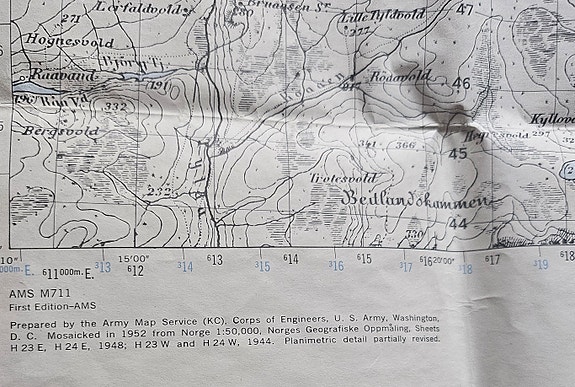 Lerfaldvold
Bruaasen Sr
47
271
Lille Tyldvold
277
Hognesvold
Björg Tj.
Raavand
191
Roaavold
46
332
Kyllove
Bergsvold
297
341
366
45
Trotesvold
232
Bedlundskammen
44
330
10"
15'00"
20'00"
000m.E.
611000m.E.
313
612
314
613
315
614
316
615
317
616
318
617
319
618
AMS M711
First Edition-AMS
Prepared by the Army Map Service (KC), Corps of Engineers, U. S. Army, Washington,
D. C. Mosaicked in 1952 from Norge 1:50,000, Norges Geografiske Oppmåling, Sheets
H 23 E, H 24 E, 1948; H 23 W and H 24 W, 1944. Planimetric detail partially revised.